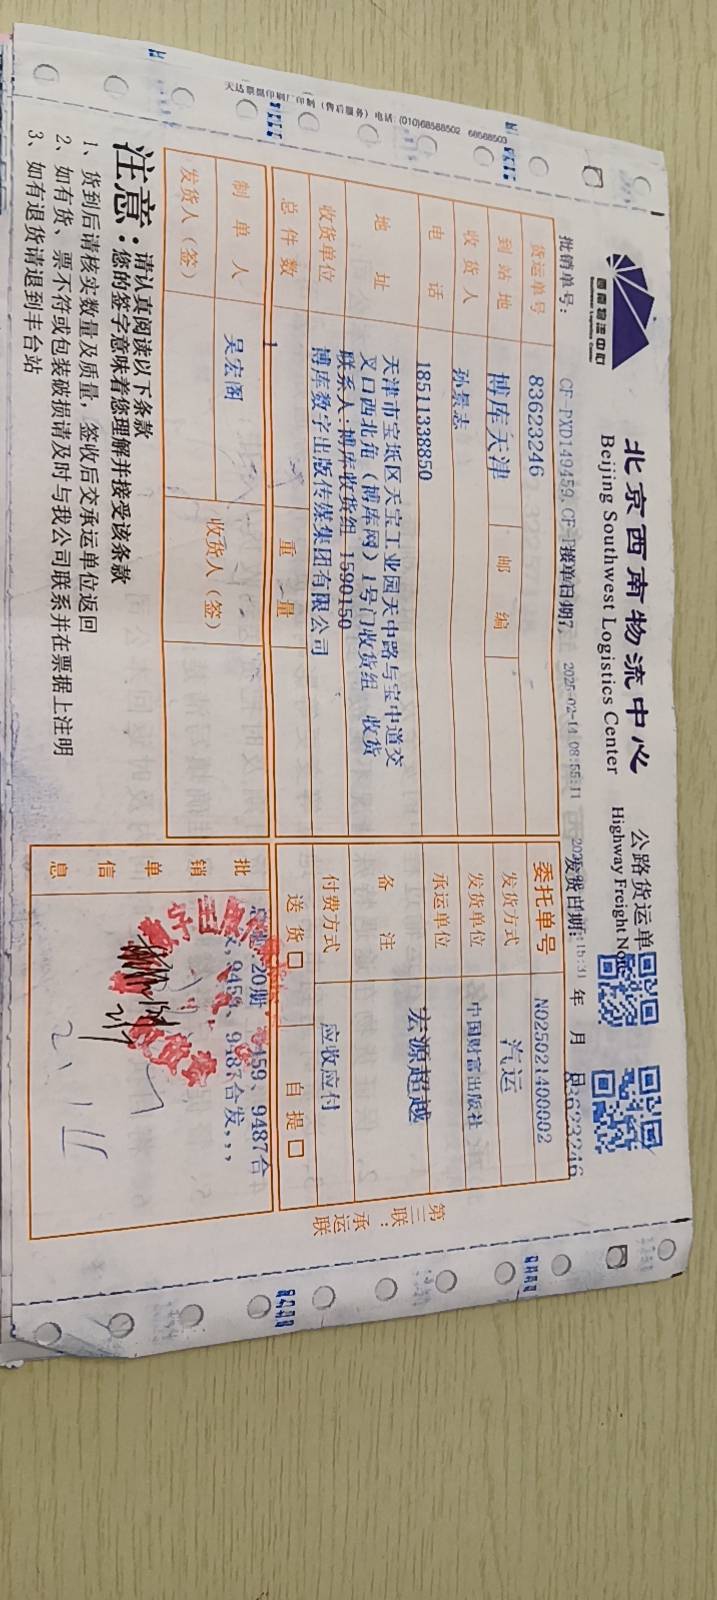 天达票据印刷厂印制（售后服务）电话：(010)68588502 68588503
西南物流中心
Southwest Logistics Center
北京西南物流中心 公路货运单
Beijing Southwest Logistics Center Highway Freight Note
批销单号： CF-PXD149459, CF-P 接单日期 2025-02-14 08:55:11 发货日期: 年 月 日
83623246
货运单号 83623246 委托单号 NO25021400002
到站地 博库天津 邮编 发货方式 汽运
收货人 孙景志 发货单位 中国财富出版社
电话 18511338850 承运单位 宏源超越
地址 天津市宝坻区天宝工业园天中路与宝中道交
叉口西北角（博库网）1号门收货组 收货
联系人:博库收货组 1590150
备注
收货单位 博库数字出版传媒集团有限公司 付费方式 应收应付
总件数 1 重量 送货□ 自提□
制单人 吴宏阁 收货人（签）
发货人（签）
批销单信息 20册 9459、9487合
9459、9487合发,,,
2.15
第三联：承运联
注意：请认真阅读以下条款
您的签字意味着您理解并接受该条款
1、货到后请核实数量及质量，签收后交承运单位返回
2、如有货、票不符或包装破损请及时与我公司联系并在票据上注明
3、如有退货请退到丰台站